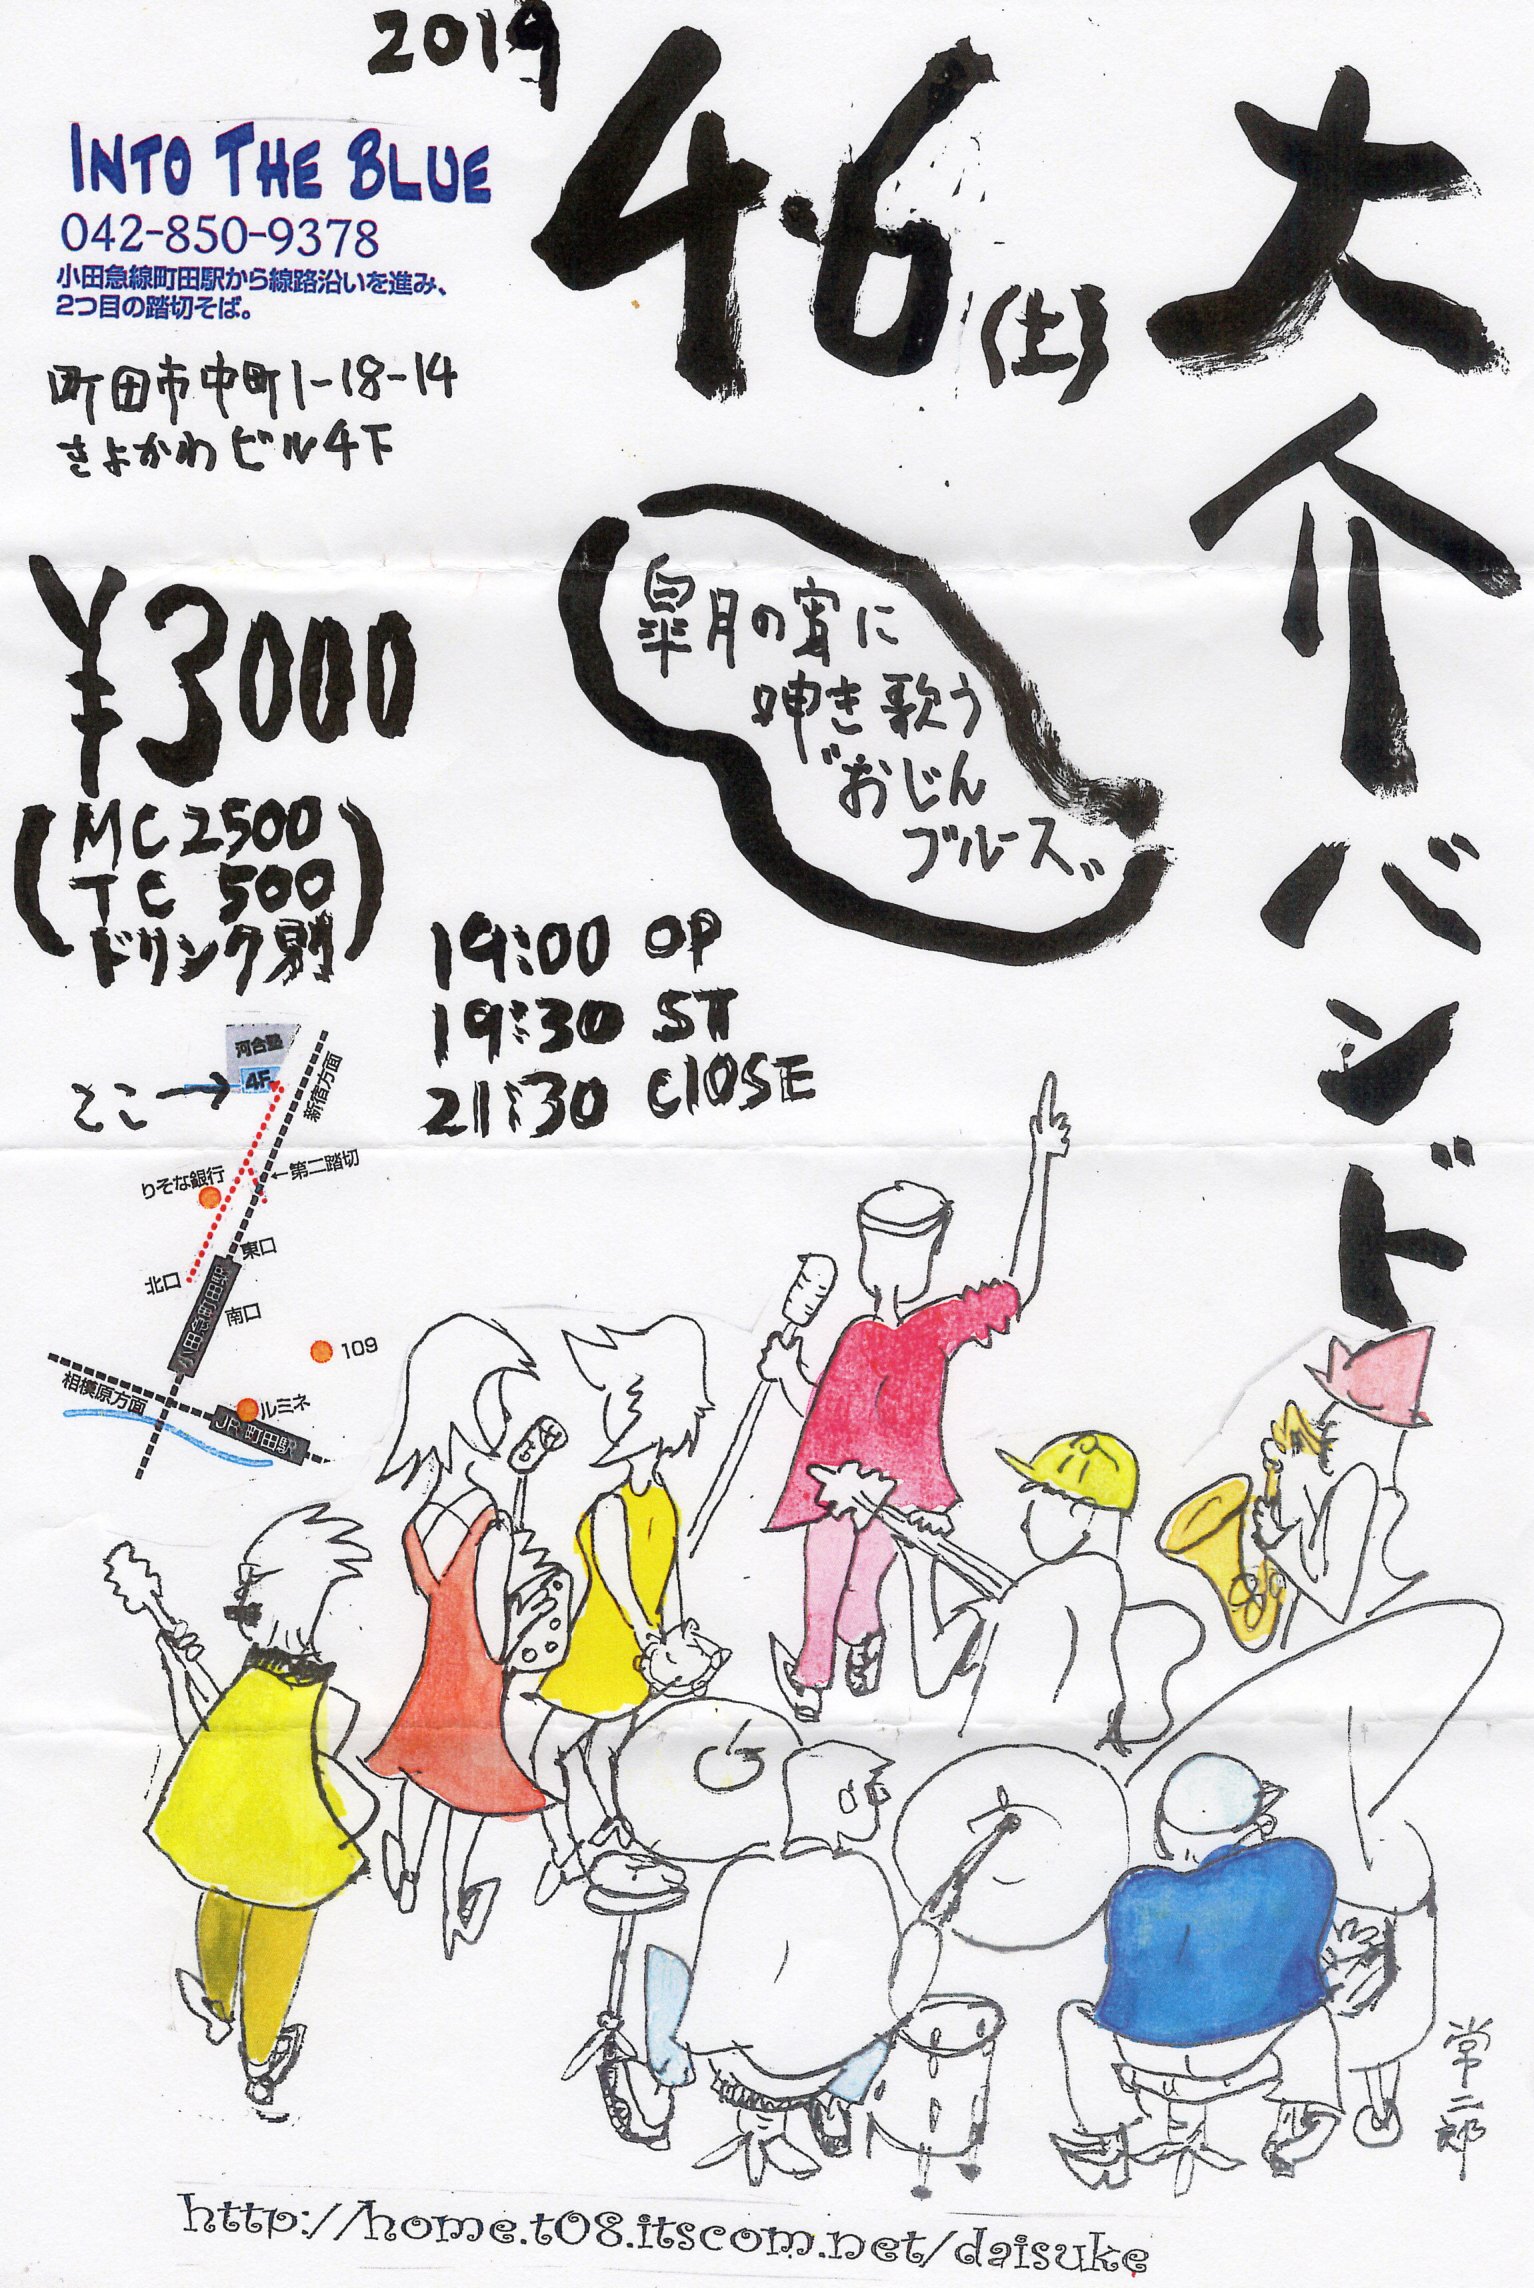 2019
4・6(土)
大介バンド
INTO THE BLUE
042-850-9378
小田急線町田駅から線路沿いを進み、
2つ目の踏切そば。
町田市中町1-18-14
きよかわビル4F
皐月の宵に
呻き歌う
"おじん
ブルース"
¥3000
(MC2500
TC 500
ドリンク別)
19:00 OP
19:30 ST
21:30 ClOSE
河合塾
4F
ここ→
新宿方面
←第二踏切
りそな銀行
東口
北口
南口
小田急町田駅
109
相模原方面
ルミネ
JR 町田駅
常二郎
http://home.t08.itscom.net/daisuke